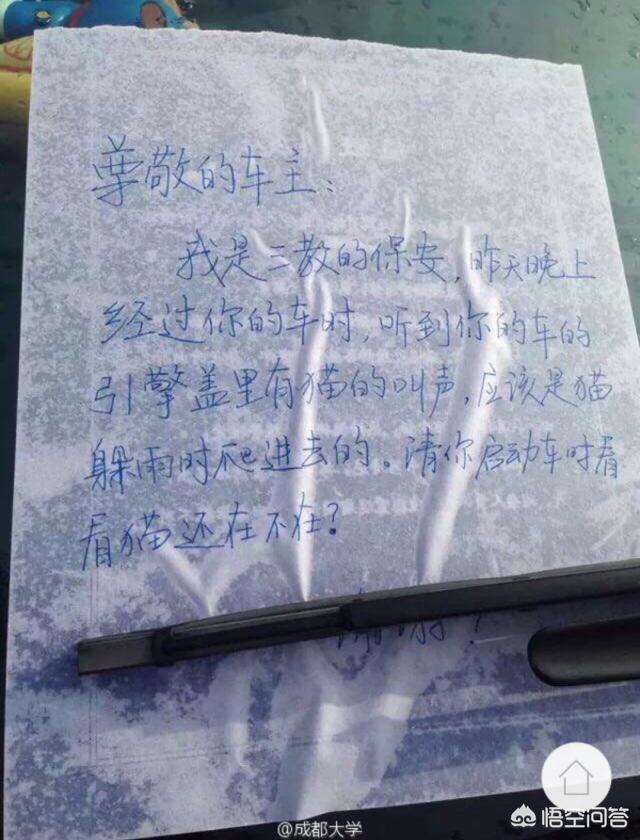 尊敬的车主：
我是三教的保安，昨天晚上
经过你的车时，听到你的车的
引擎盖里有猫的叫声，应该是猫
躲雨时爬进去的。请你启动车时看
看猫还在不在？
@成都大学
悟空问答